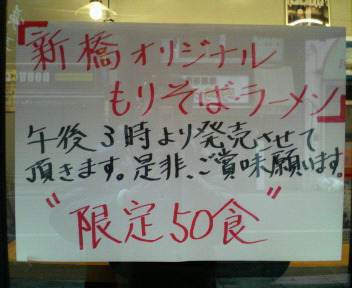 新橋オリジナル
もりそば・ラーメン
午後3時より発売させて
頂きます。是非、ご賞味願います。
"限定50食"